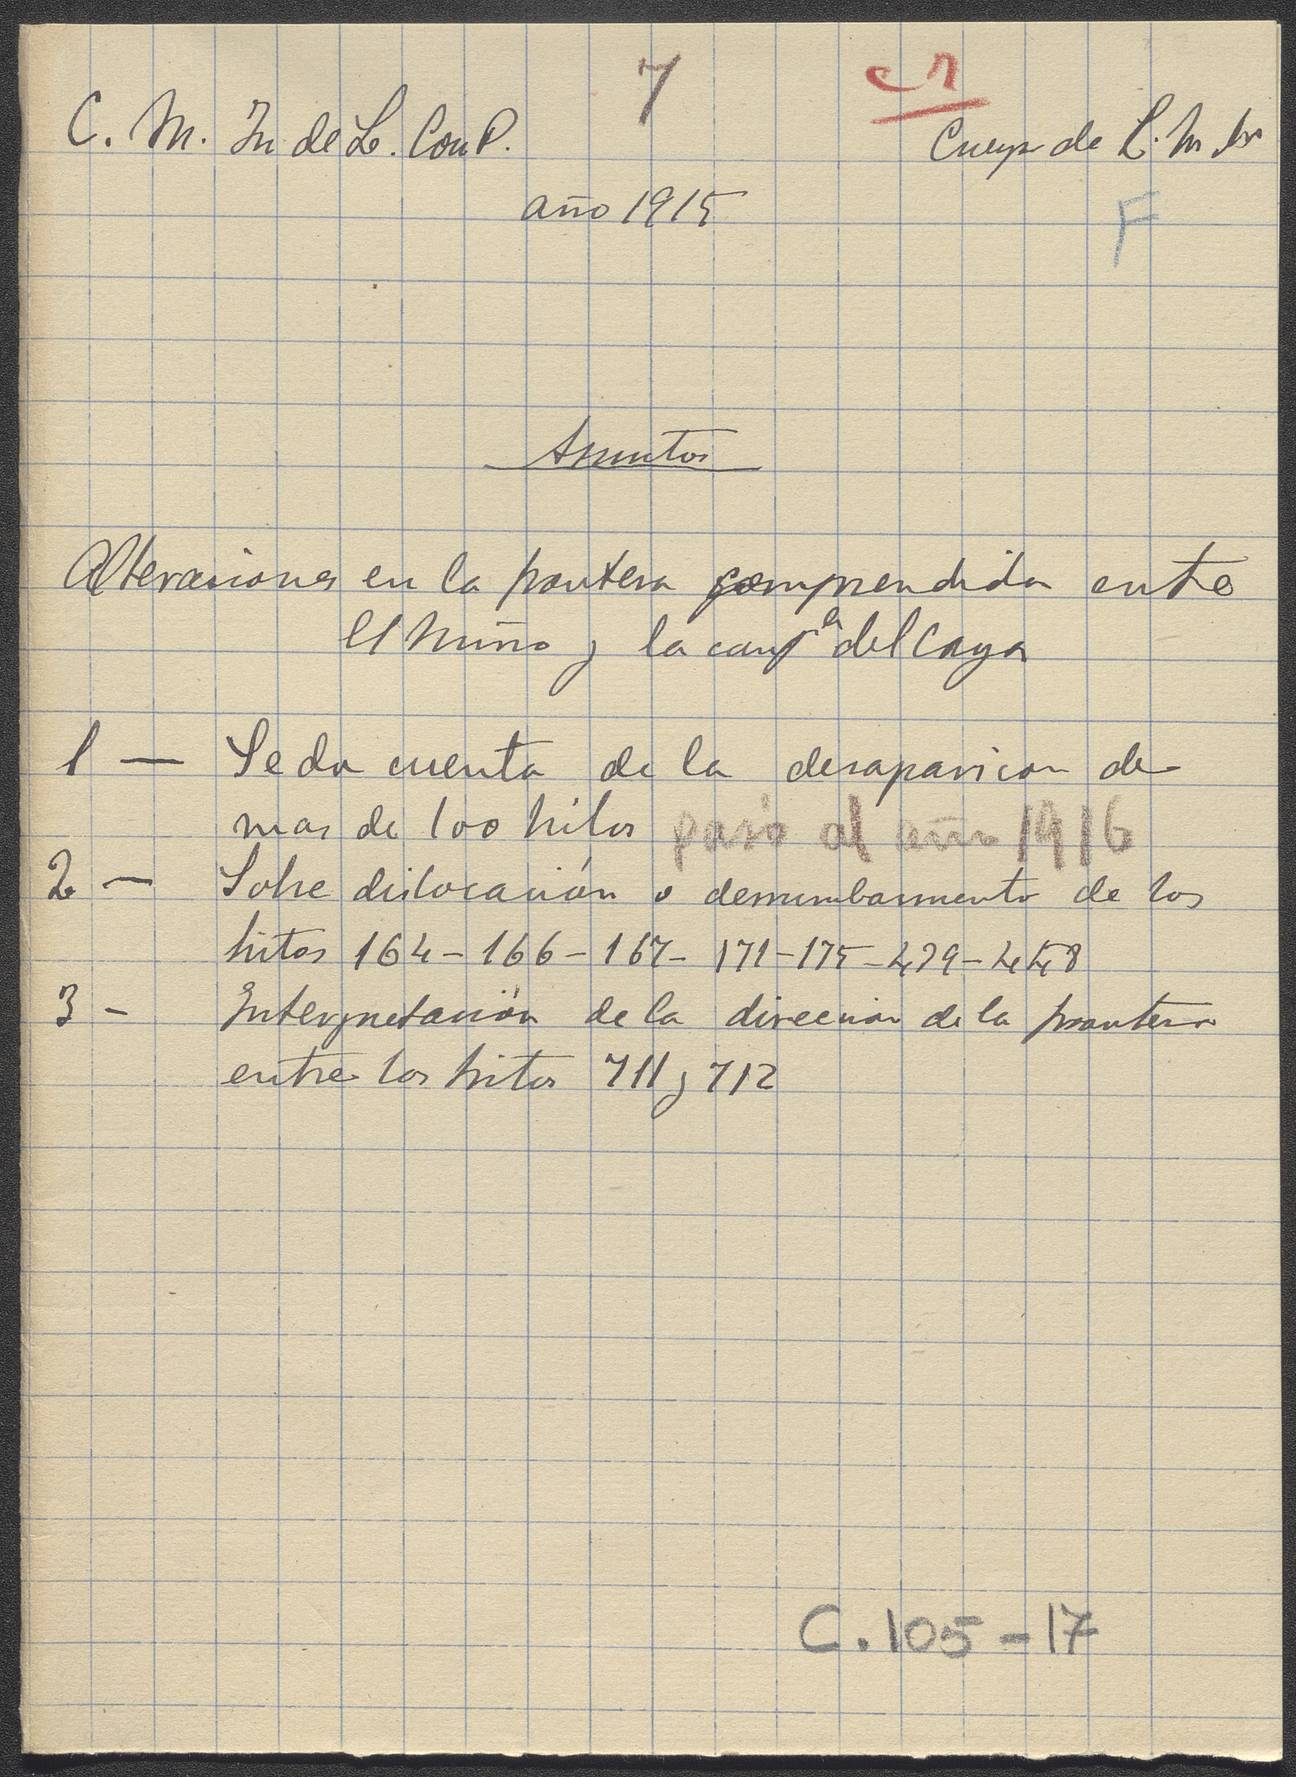 7
C. M. In de L. Con P.
Cuerpo de E. M.
año 1915
F
Asuntos
Alteraciones en la frontera comprendida entre
el Miño y la confª del Caya
1 — Se da cuenta de la desaparicion de
mas de 100 hitos pasó al año 1916
2 — Sobre dislocación o derrumbamiento de los
hitos 164 - 166 - 167 - 171 - 175 - 479 - 448
3 - Interpretación de la direccion de la frontera
entre los hitos 711 y 712
C. 105 - 17